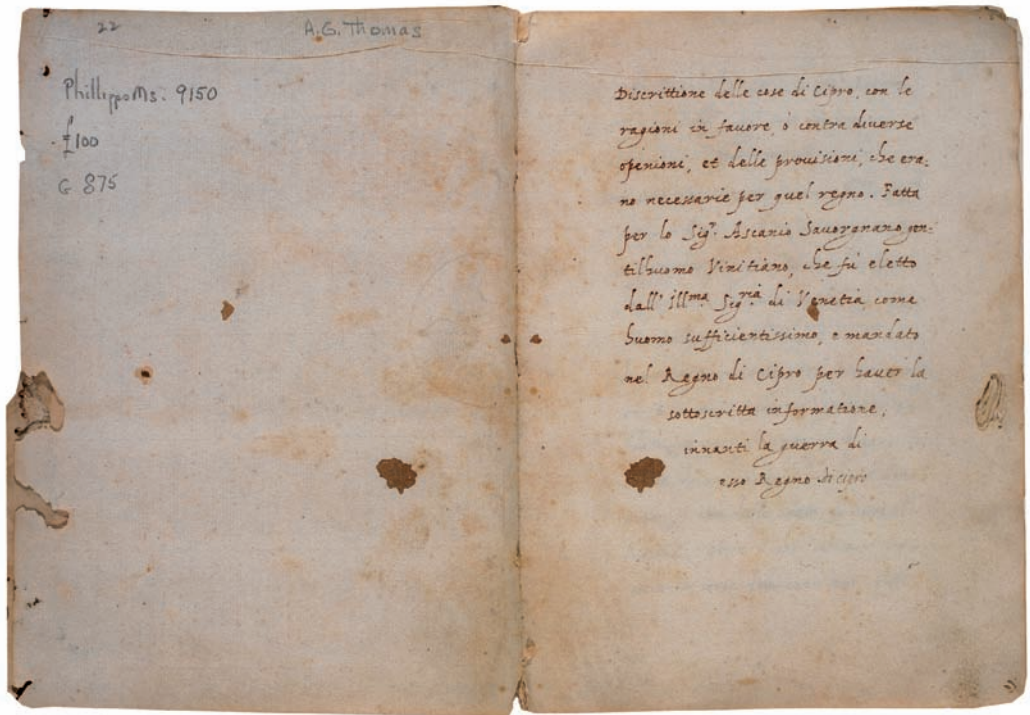 22
A.G. Thomas
Phillipps Ms. 9150
£100
G 875
Discrittione delle cose di Cipro, con le
ragioni in favore, ò contra diverse
openioni, et delle provisioni, che era:
no necessarie per quel regno. Fatta
per lo Sig.r Ascanio Savorgnano gen:
tilhuomo Vinitiano, che fù eletto
dall' Ill.ma Sig.ria di Venetia come
huomo sufficientissimo, e mandato
nel Regno di Cipro per haver la
sottoscritta informatione,
innanti la guerra di
esso Regno di Cipro